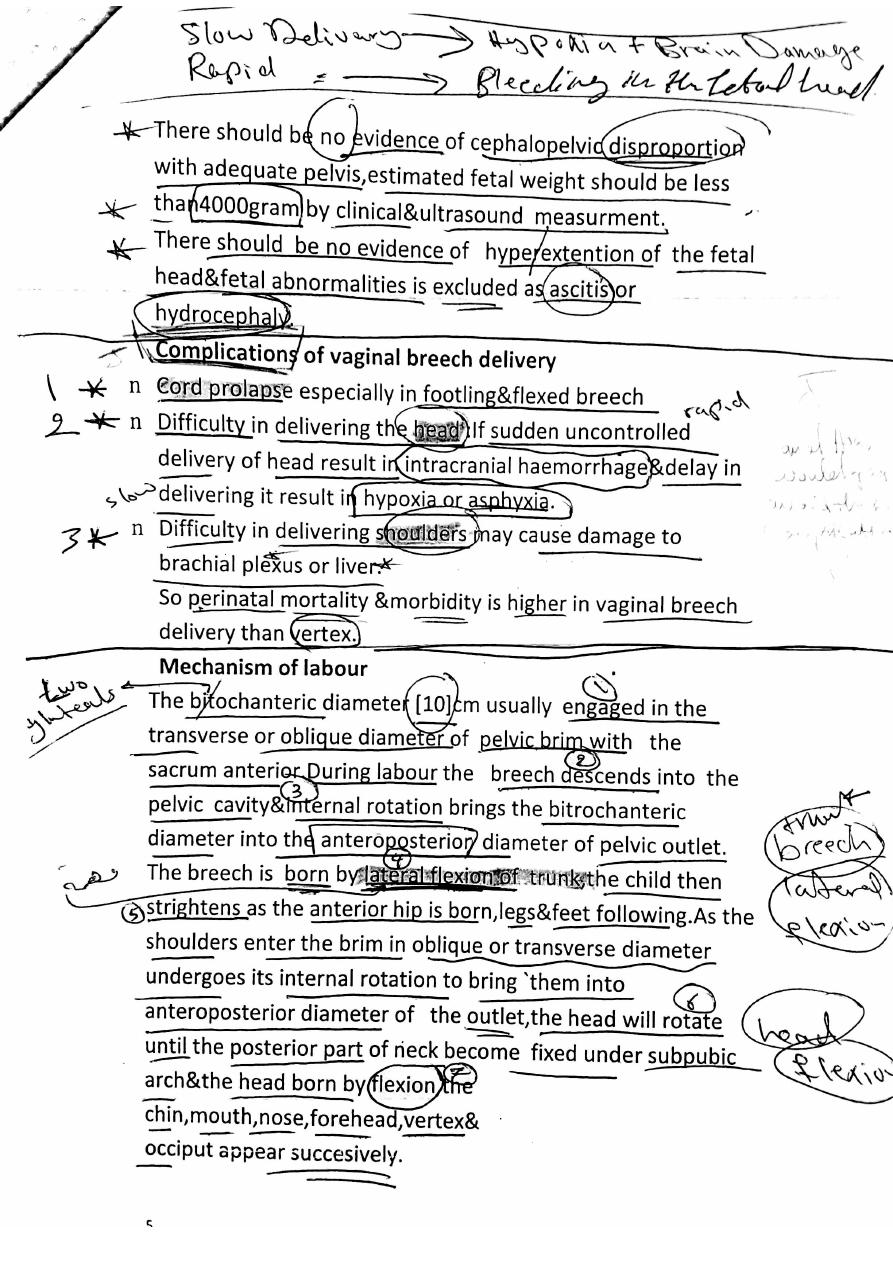 Slow Delivery → Hypoxia + Brain Damage
Rapid = → Bleeding in the fetal head
There should be no evidence of cephalopelvic disproportion
with adequate pelvis,estimated fetal weight should be less
than4000gram by clinical&ultrasound measurment.
There should be no evidence of hyperextention of the fetal
head&fetal abnormalities is excluded as ascitis or
hydrocephaly.
Complications of vaginal breech delivery
1 * n Cord prolapse especially in footling&flexed breech
rapid
2 * n Difficulty in delivering the head.If sudden uncontrolled
delivery of head result in intracranial haemorrhage&delay in
slow delivering it result in hypoxia or asphyxia.
3 * n Difficulty in delivering shoulders may cause damage to
brachial plexus or liver.
So perinatal mortality &morbidity is higher in vaginal breech
delivery than vertex.
Mechanism of labour
two
1
The bitochanteric diameter [10]cm usually engaged in the
transverse or oblique diameter of pelvic brim with the
2
sacrum anterior.During labour the breech descends into the
3
pelvic cavity&internal rotation brings the bitrochanteric
diameter into the anteroposterior diameter of pelvic outlet.
breech
4
The breech is born by lateral flexion of trunk,the child then
lateral
5 strightens as the anterior hip is born,legs&feet following.As the
flexion
shoulders enter the brim in oblique or transverse diameter
undergoes its internal rotation to bring `them into
6
anteroposterior diameter of the outlet,the head will rotate
head
until the posterior part of neck become fixed under subpubic
flexion
7
arch&the head born by flexion the
chin,mouth,nose,forehead,vertex&
occiput appear succesively.
5